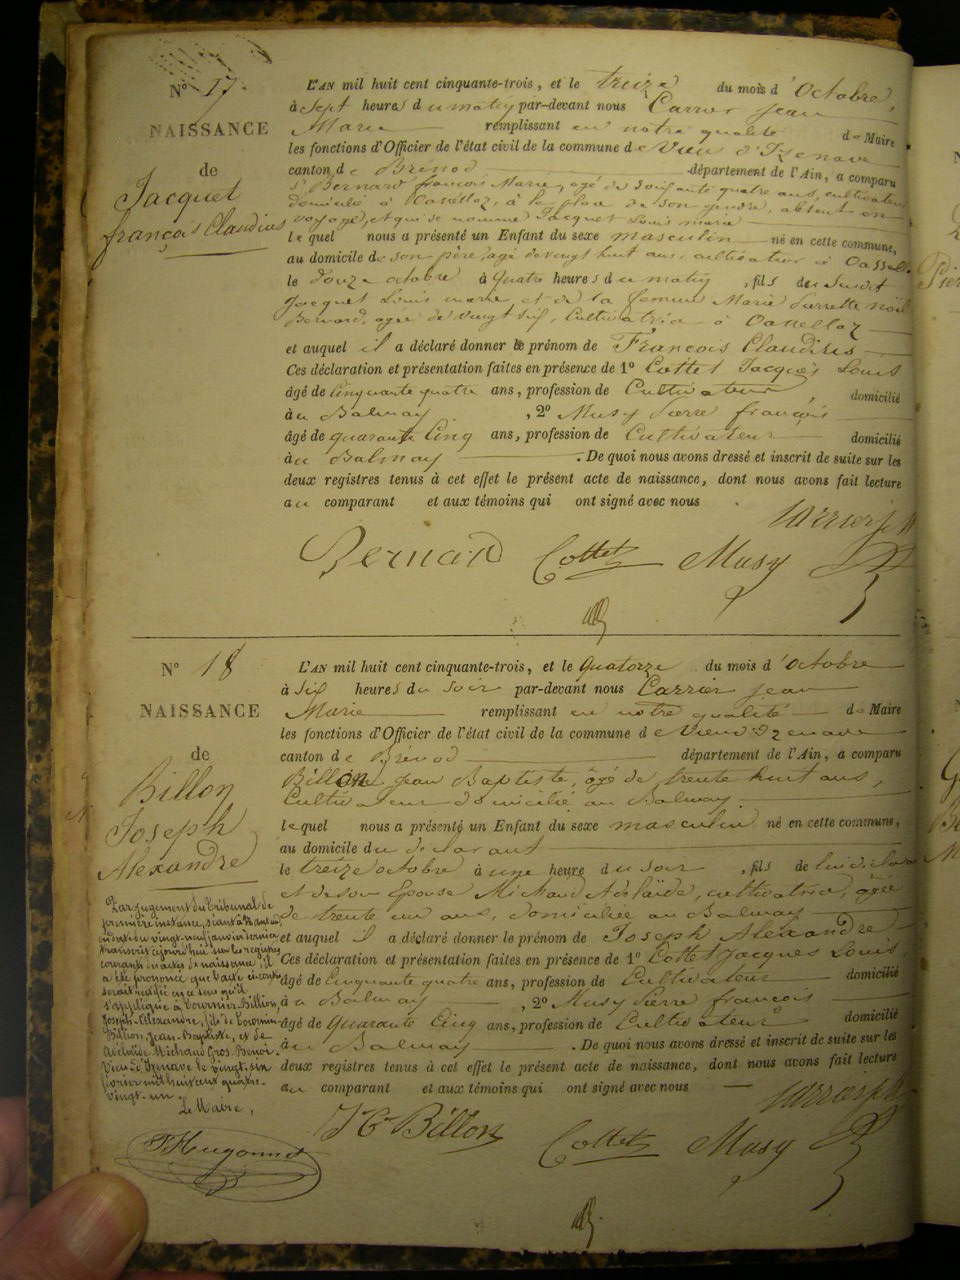 N° 17.
NAISSANCE
de
Jacquet
françois Claudius
L'AN mil huit cent cinquante-trois, et le treize du mois d'Octobre,
à Sept heures du matin par-devant nous Carrier Jean
Marie remplissant en notre qualité de Maire
les fonctions d'Officier de l'état civil de la commune de Vieu d'Izenave
canton de Brénod département de l'Ain, a comparu
Sr Bernard françois Marie, agé de Soixante quatre ans, cultivateur
domicilié à Oasellaz, à la place de son gendre, absent en
voyage, et qui se nomme Jacquet Louis marie
lequel nous a présenté un Enfant du sexe masculin né en cette commune,
au domicile de son père, agé de vingt huit ans, cultivateur à
le douze octobre à quatre heures du matin, fils du Susdit
Jacquet Louis marie, et de la femme Marie Pierrette
Bernard, agée de vingt six, Cultivatrice à Oasellaz
et auquel il a déclaré donner le prénom de François Claudius
Ces déclaration et présentation faites en présence de 1° Cottet Jacques Louis
âgé de Cinquante quatre ans, profession de Cultivateur, domicilié
à au Balmay, 2° Musy Pierre françois
âgé de quarante Cinq ans, profession de Cultivateur domicilié
à au Balmay. De quoi nous avons dressé et inscrit de suite sur les
deux registres tenus à cet effet le présent acte de naissance, dont nous avons fait lecture
au comparant et aux témoins qui ont signé avec nous
Carrier j M
Bernard Cottet Musy
N° 18
NAISSANCE
de
Billon
Joseph
Alexandre
L'AN mil huit cent cinquante-trois, et le Quatorze du mois d'octobre
à six heures du soir par-devant nous Carrier jean
Marie remplissant en notre qualité de Maire
les fonctions d'Officier de l'état civil de la commune de Vieu d'Izenave
canton de Brénod département de l'Ain, a comparu
Billon jean Baptiste, âgé de trente huit ans,
Cultivateur domicilié au Balmay
lequel nous a présenté un Enfant du sexe masculin né en cette commune,
au domicile du déclarant
le treize octobre à une heure du soir, fils de lui
et de son épouse Michaud Adélaïde, cultivatrice, âgée
de trente un ans, domiciliée au Balmay
et auquel il a déclaré donner le prénom de Joseph Alexandre
Ces déclaration et présentation faites en présence de 1° Cottet Jacques Louis,
âgé de Cinquante quatre ans, profession de Cultivateur domicilié
à au Balmay, 2° Musy Pierre francois
âgé de Quarante Cinq ans, profession de Cultivateur domicilié
à au Balmay. De quoi nous avons dressé et inscrit de suite sur les
deux registres tenus à cet effet le présent acte de naissance, dont nous avons fait lecture
au comparant et aux témoins qui ont signé avec nous
Carrier j M
J B Billon Cottet Musy
Par jugement du Tribunal de
première instance, séant à Nantua
en date du vingt-neuf janvier dernier
transcrit cejourd'hui sur les registres
courants des actes de naissance, il
a été prononcé que l'acte ci-contre
serait rectifié en ce sens qu'il
s'applique à Tournier-Billon,
Joseph-Alexandre, fils de Tournier-
Billon, Jean-Baptiste, et de
Adélaïde Michaud Gros-Benoit.
Vieu-d'Izenave le vingt-un
février mil huit cent quatre-
vingt-un.
Le Maire,
Hugonnet